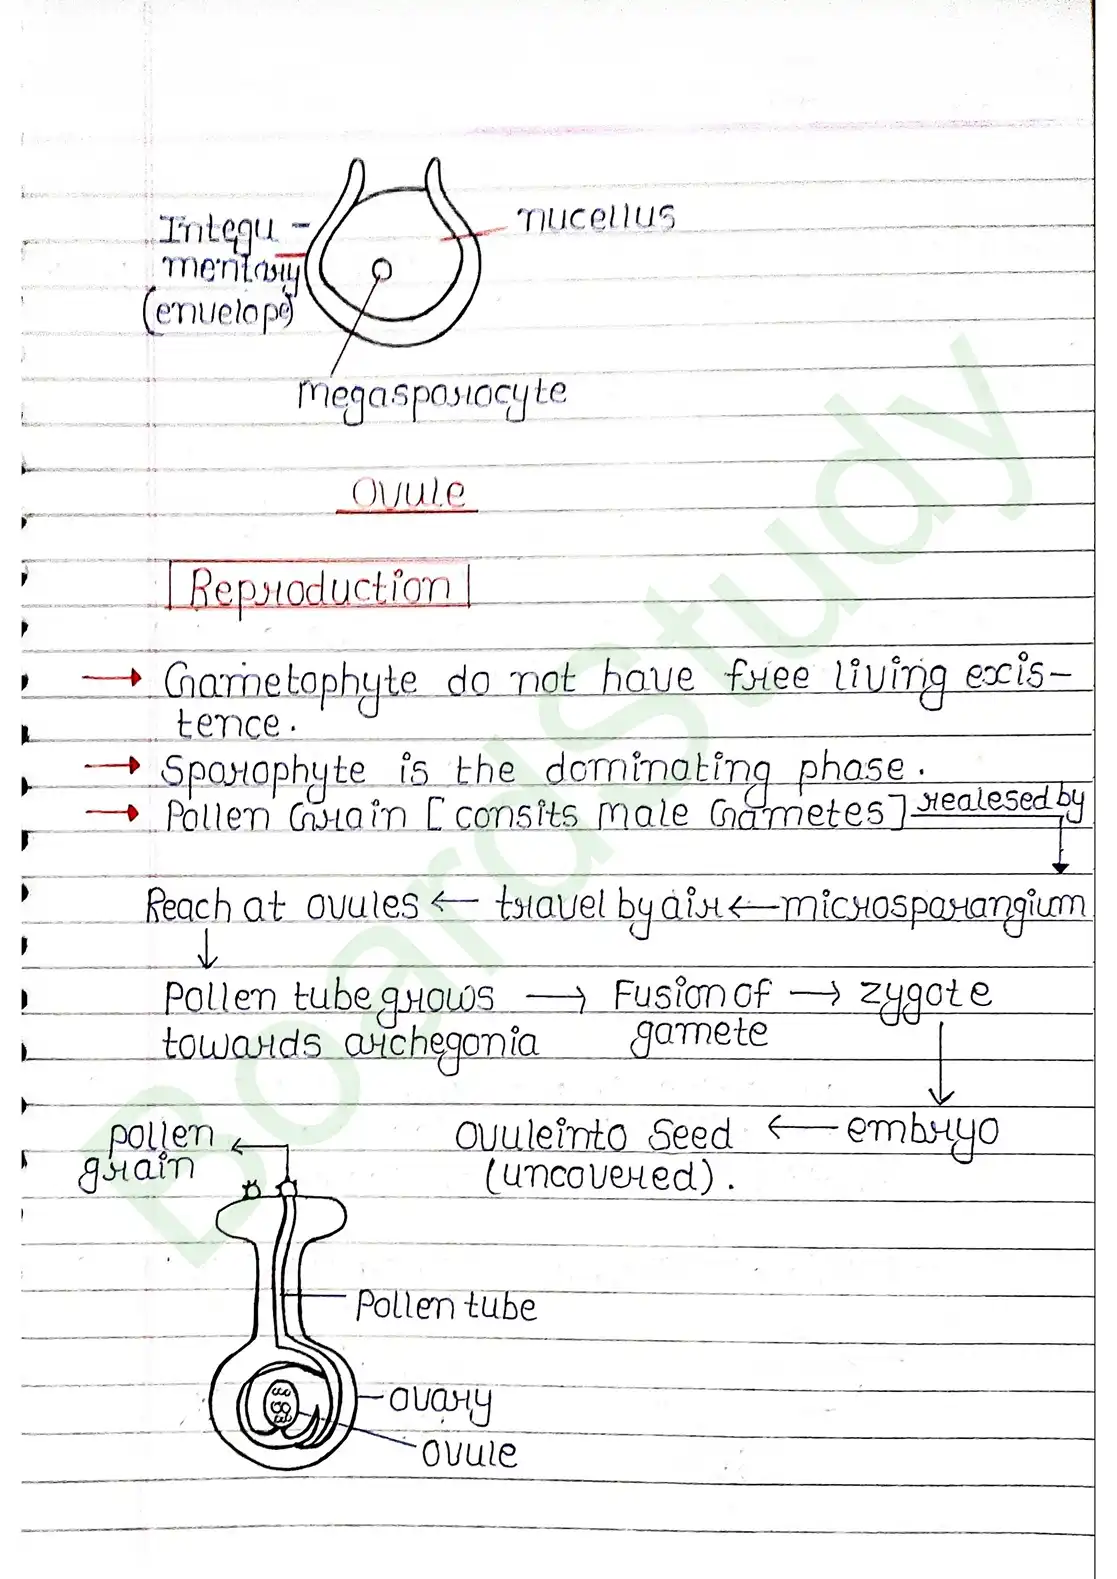 Integu -
mentary
(envelope)
nucellus
megasporocyte
Ovule
Reproduction
→ Gametophyte do not have free living excis-
tence.
→ Sporophyte is the dominating phase.
→ Pollen Grain [consits Male Gametes] realesed by
Reach at ovules ← travel by air ← microsporangium
↓
Pollen tube grows → Fusion of → zygote
towards archegonia gamete
Ovule into Seed ← embryo
(uncovered).
pollen
grain
Pollen tube
ovary
ovule
BoardStudy